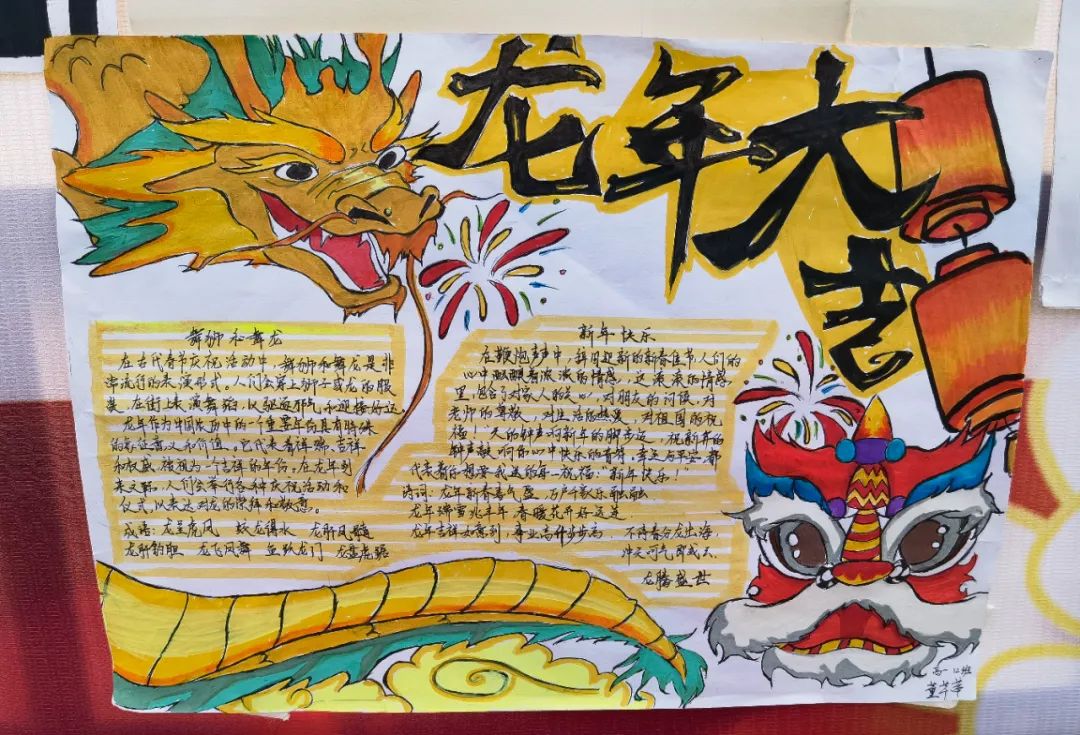 龙年大吉
舞狮和舞龙
在古代春节庆祝活动中,舞狮和舞龙是非
常流行的表演形式,人们会穿上狮子或龙的服
装,在街上表演舞蹈,以驱逐邪气和迎接好运。
龙年作为中国农历中的一个重要年份具有特殊
的象征意义和价值。它代表着祥瑞、吉祥
和权威,被视为一个吉祥的年份,在龙年到
来之际,人们会举行各种庆祝活动和
仪式,以表达对龙的崇拜和敬意。
成语:龙呈虎风 蛟龙得水 龙肝凤髓
龙肝豹胆 龙飞凤舞 鱼跃龙门 龙盘虎踞
新年快乐
在鞭炮声中,辞旧迎新的新春佳节,人们的
心中酝酿着浓浓的情感,这浓浓的情感
里,包含了对家人的关心,对朋友的问候,对
老师的尊敬,对生活的热爱,对祖国的祝
福!大的钟声响新年的脚步近,祝新年的
钟声敲响你心中快乐的音符,幸运与平安,都
代表着你想要我送的每一祝福:“新年快乐!
诗词:龙年新春喜气盛,万户千歌乐融融
龙年瑞雪兆丰年 春暖花开好运连
龙年吉祥如意到,事业高升步步高,不待春分龙出海,
冲天可气即成云
龙腾盛世
高一12班